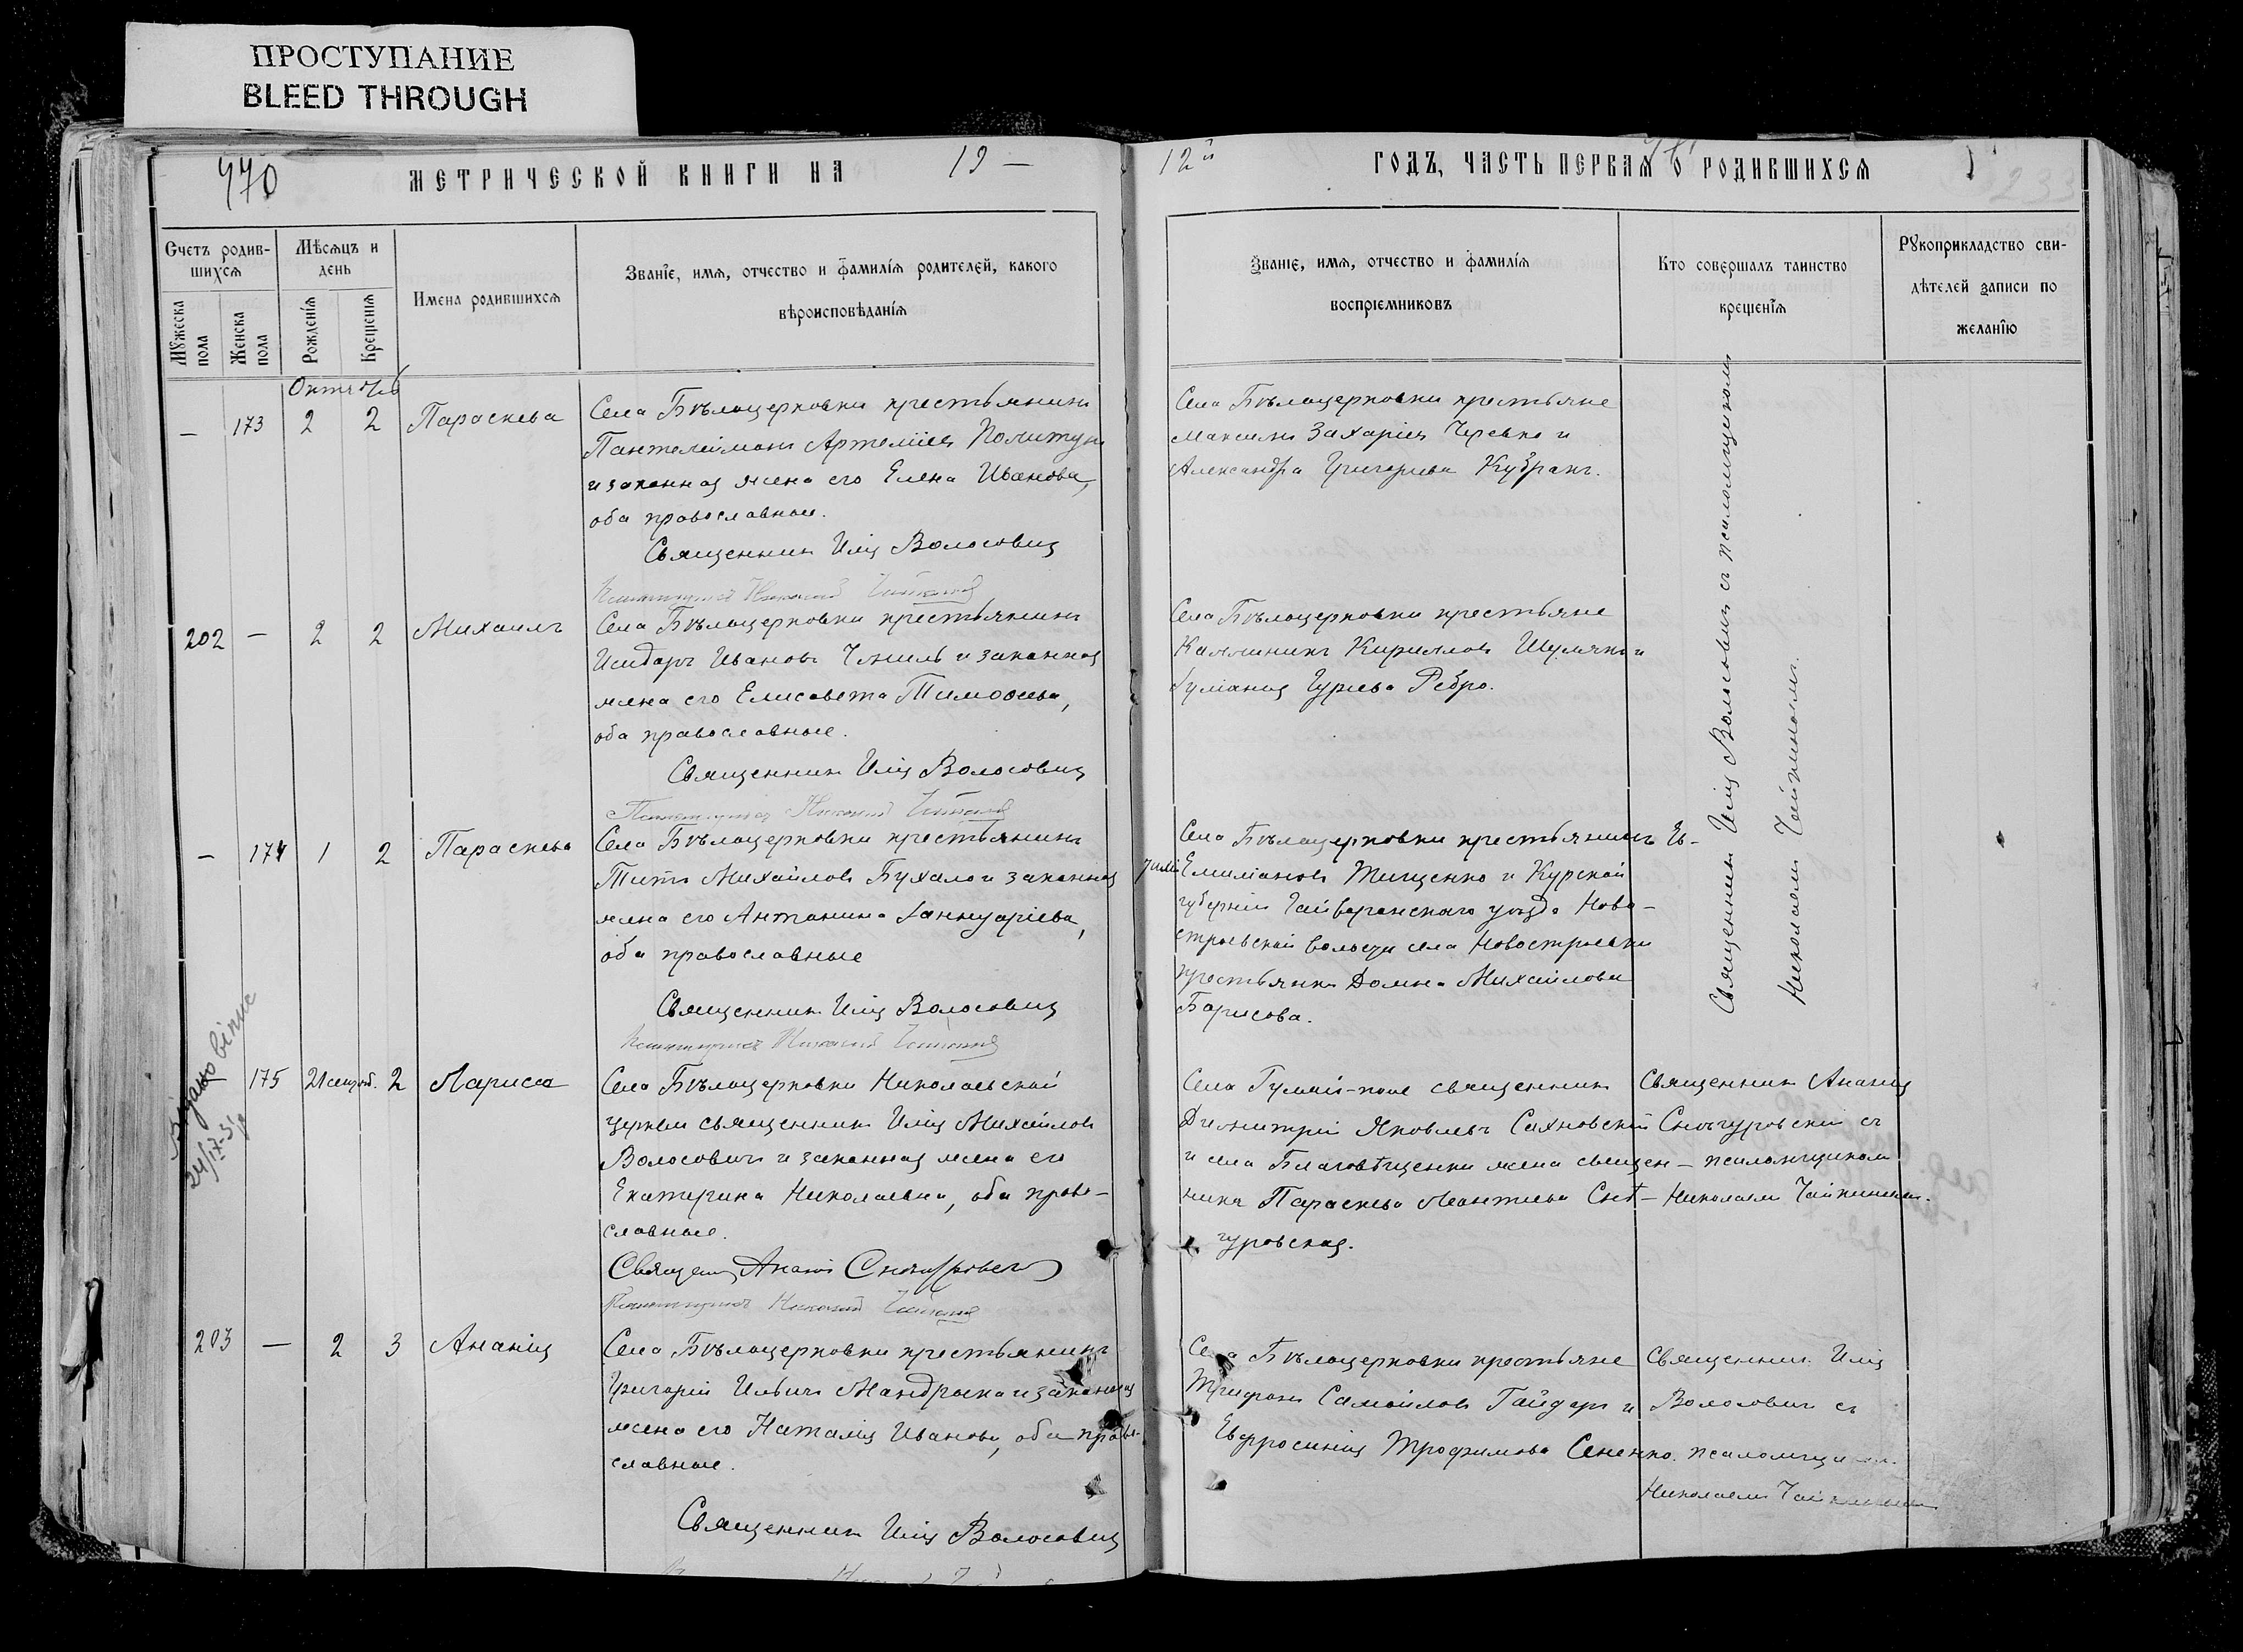 ПРОСТУПАНИЕ
BLEED THROUGH
470
МЕТРИЧЕСКОЙ КНИГИ НА
19 —
12й
ГОДЪ, ЧАСТЬ ПЕРВАЯ О РОДИВШИХСЯ
233
Счетъ родив-
шихся
Мужеска пола
Женска пола
Мѣсяцъ и
день
Рожденія
Крещенія
Имена родившихся
Званіе, имя, отчество и фамилія родителей, какого
вѣроисповѣданія
Званіе, имя, отчество и фамилія
воспріемниковъ
Кто совершалъ таинство
крещенія
Рукоприкладство сви-
дѣтелей записи по
желанію
Октябрь
— 173 2 2 Параскева
Села Бѣлоцерковки крестьянинъ
Пантелеймонъ Артеміевъ
и законная жена его Елена Иванова,
оба православные.
Священникъ Илія Волосовичъ
Николай
Села Бѣлоцерковки крестьяне
Максимъ Захаріевъ Черевко и
Александра Григорьева
202 — 2 2 Михаилъ
Села Бѣлоцерковки крестьянинъ
Исидоръ Ивановъ и законная
жена его Елисавета Тимофеева,
оба православные.
Священникъ Илія Волосовичъ
Николай
Села Бѣлоцерковки крестьяне
Каллиникъ Кирилловъ и
Гурьева Ребро.
— 174 1 2 Параскева
Села Бѣлоцерковки крестьянинъ
Титъ Михайловъ Бухало и законная
жена его Антонина Іаннуаріева,
оба православные
Священникъ Илія Волосовичъ
Николай
Села Бѣлоцерковки крестьянинъ
Емиліановъ Тищенко и Курской
губерніи Гайворонскаго уѣзда Ново-
строевской волости села Новостроевки
крестьянка Домна Михайлова
Борисова.
Священникъ Илія Волосовичъ съ псаломщикомъ
Николаемъ Чайкиномъ.
Видано
24/IX-31
175 21 сентяб. 2 Лариса
Села Бѣлоцерковки Николаевской
церкви священникъ Илія Михайловъ
Волосовичъ и законная жена его
Екатерина Николаевна, оба право-
славные.
Священ. Ананія Снѣгуровскій
Николай
Села Гуляй-поле священникъ
Димитрій Яковлевъ Сахновскій
и села Благовѣщенки жена священ-
ника Параскева Леонтиева Снѣ-
гуровская.
Священникъ Ананія
Снѣгуровскій съ
псаломщикомъ
Николаемъ Чайкинымъ.
203 — 2 3 Ананія
Села Бѣлоцерковки крестьянинъ
Григорій Ильичъ и законная
жена его Наталія Иванова, оба право-
славные.
Священникъ Илія Волосовичъ
Села Бѣлоцерковки крестьяне
Трифонъ Самойловъ и
Евфросинія Трофимова Сененко.
Священникъ Илія
Волосовичъ съ
псаломщи
Николаемъ